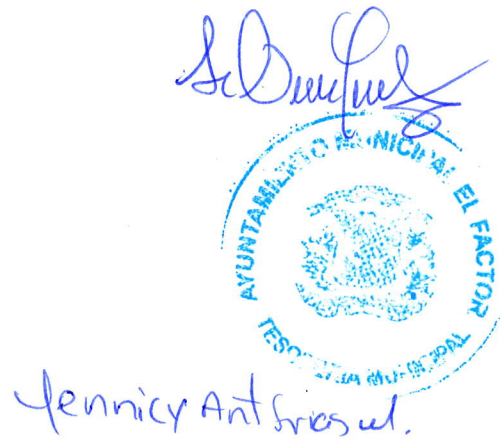 AYUNTAMIENTO MUNICIPAL EL FACTOR
TESORERIA MUNICIPAL
Yennicy Ant Frias